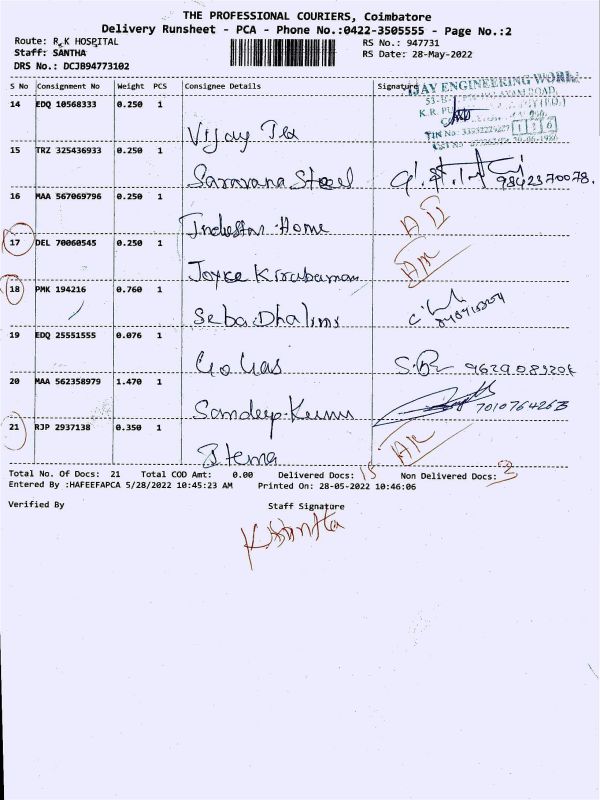 THE PROFESSIONAL COURIERS, Coimbatore
Delivery Runsheet - PCA - Phone No.:0422-3505555 - Page No.:2
Route: R K HOSPITAL RS No.: 947731
Staff: SANTHA RS Date: 28-May-2022
DRS No.: DCJB94773102
S No Consignment No Weight PCS Consignee Details Signature
14 EDQ 10568333 0.250 1
Vijay
15 TRZ 325436933 0.250 1
Saravana Steel 9842370078.
16 MAA 567069796 0.250 1
Home
17 DEL 70060545 0.250 1
Joyce
18 PMK 194216 0.760 1
Seba
19 EDQ 25551555 0.076 1
Go Gas
20 MAA 562358979 1.470 1
Sandeep Kumar 7010764263
21 RJP 2937138 0.350 1
VIJAY ENGINEERING WORK
Total No. Of Docs: 21 Total COD Amt: 0.00 Delivered Docs: 15 Non Delivered Docs: 3
Entered By :HAFEEFAPCA 5/28/2022 10:45:23 AM Printed On: 28-05-2022 10:46:06
Verified By Staff Signature